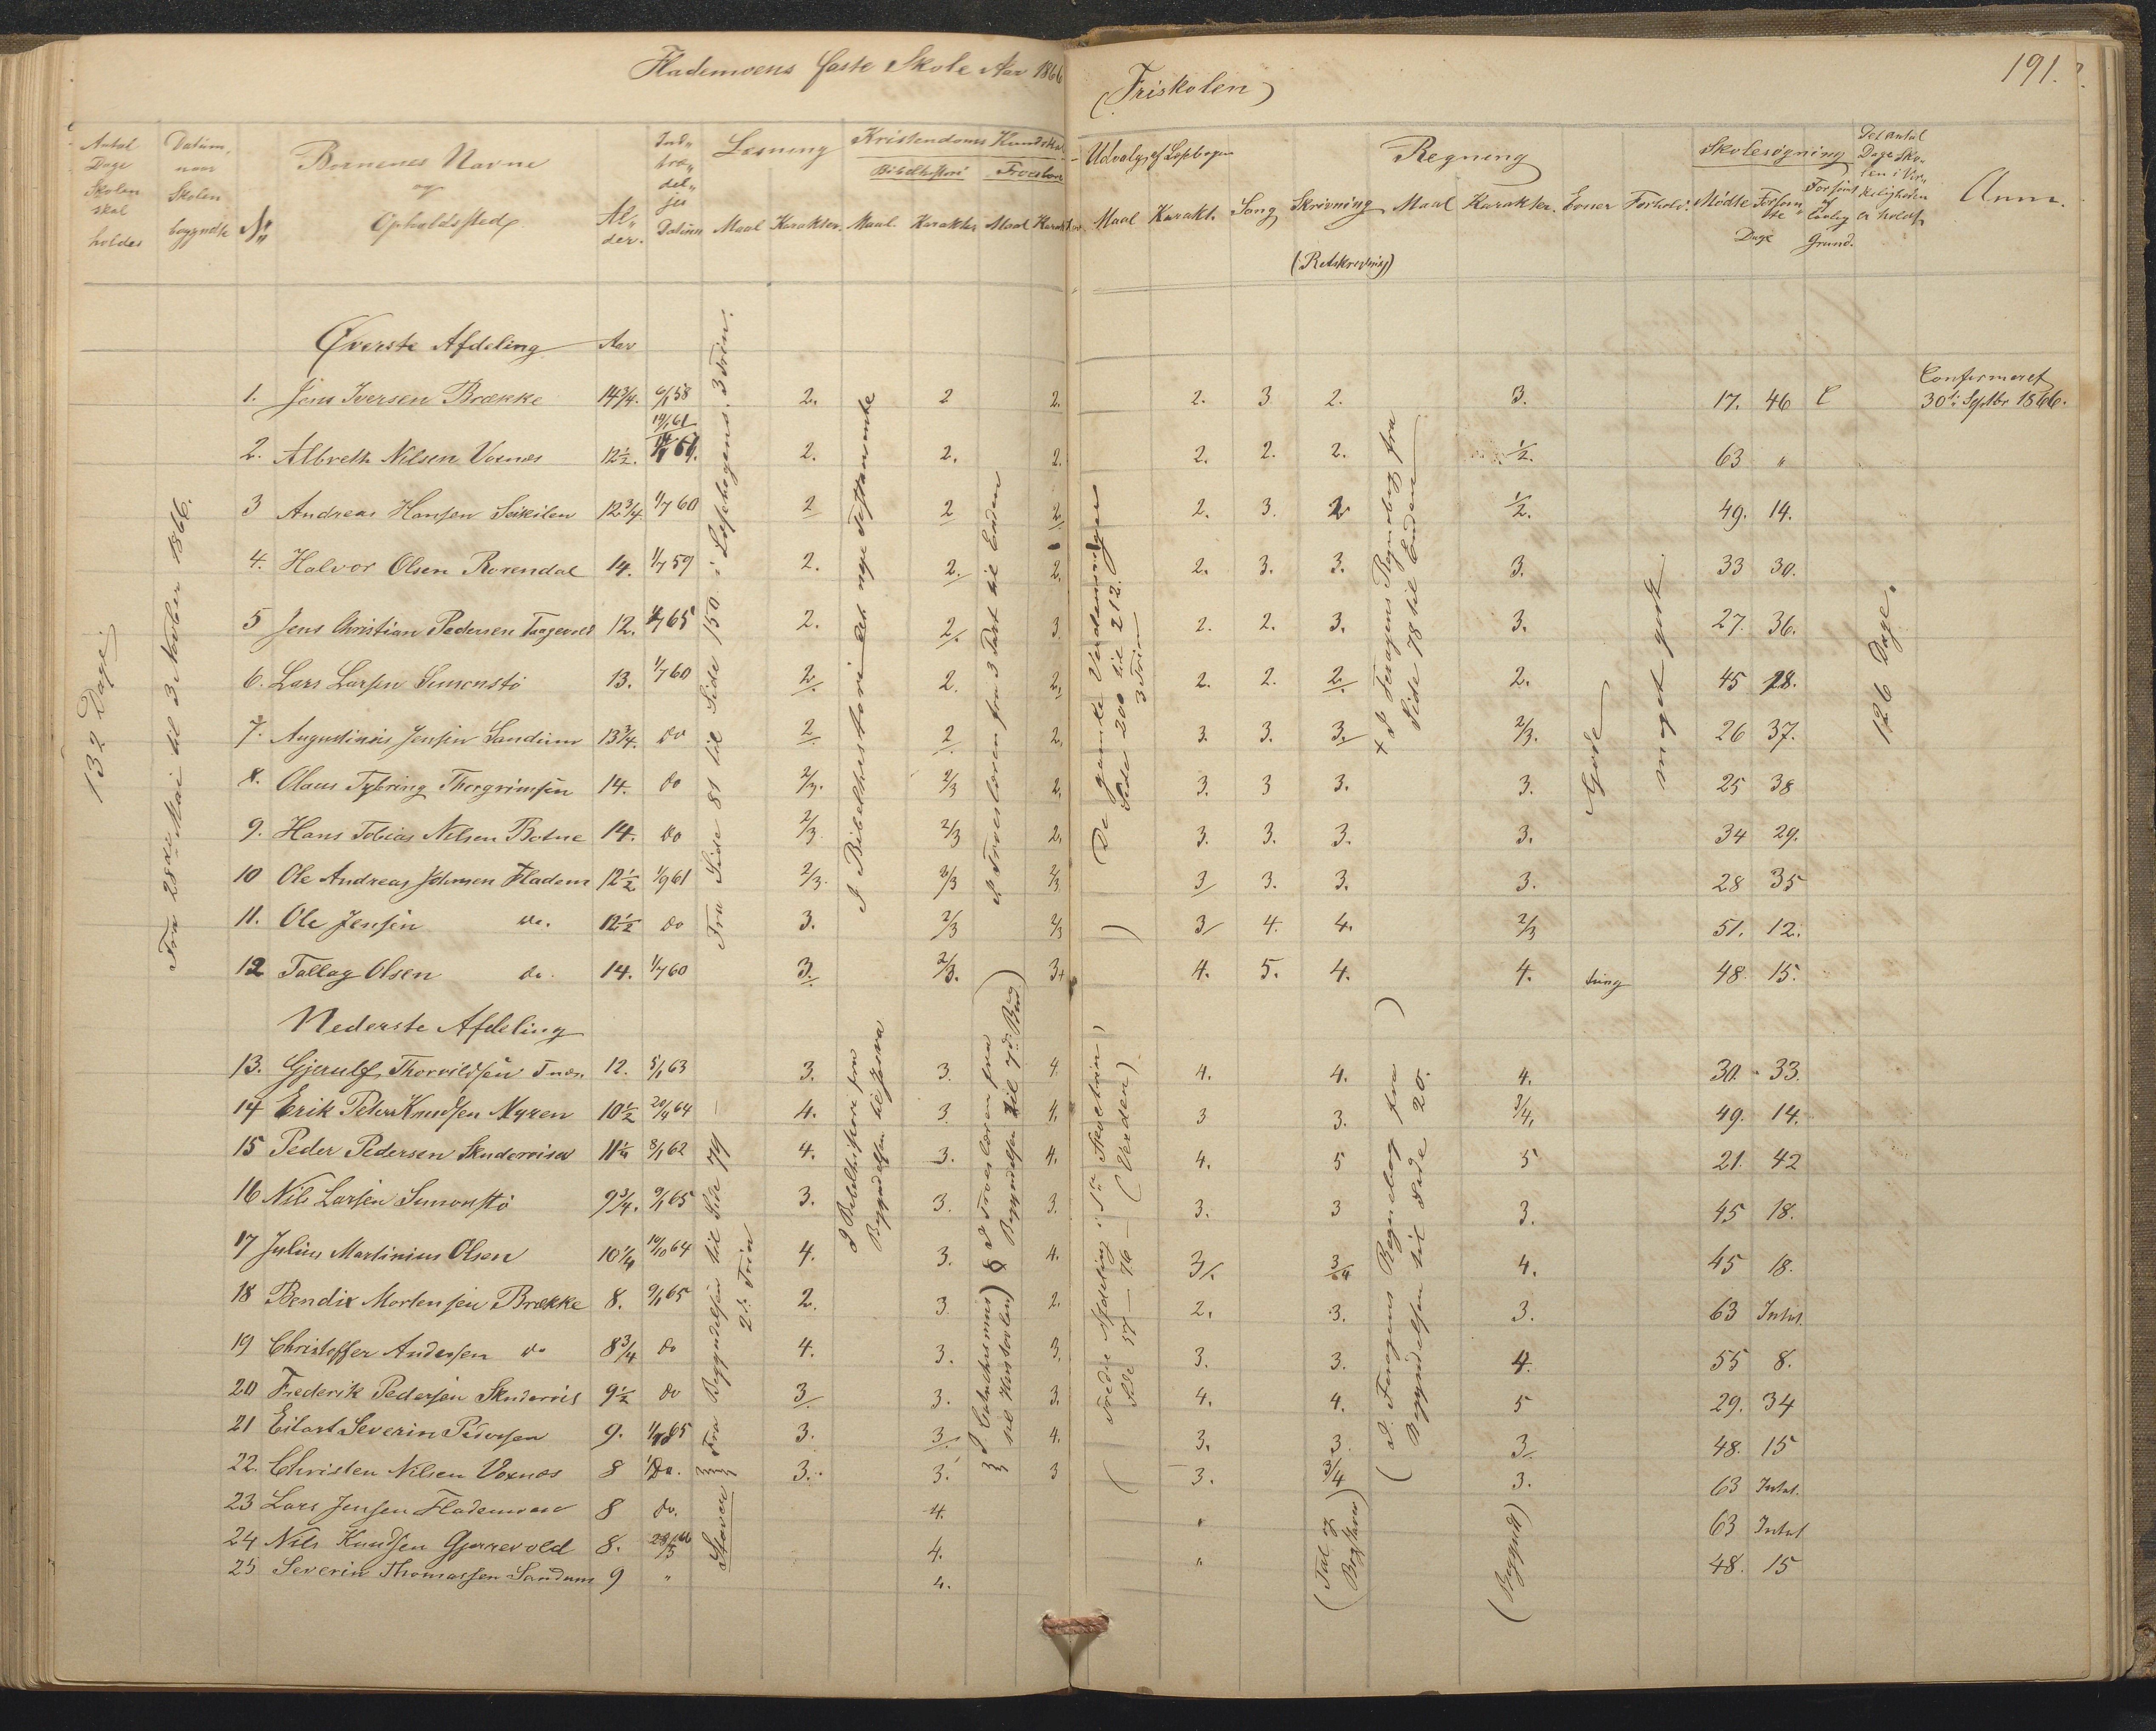 Flademoens faste Skole Aar 1866
(Friskolen)
191.
Antal Dage Skolen skal holdes
Datum, naar Skolen begyndte
No
Børnenes Navne og Opholdssted
Alder.
Indtrædelses Datum
Læsning
Maal Karakter.
Kristendoms Kundskab
Bibelhistorie
Maal. Karakter
Troeslære
Maal Karakter
Udvalg af Læsebogen
Maal Karakt.
Sang
Skrivning
(Retskrivning)
Regning
Maal Karakter.
Evner
Forhold.
Skolesøgning
Mødte Forsømte Dage
Forsømt af lovlig Grund.
Det antal Dage Skolen i Virkeligheden er holdt
Anm.
132 Dage
Fra 28de Mai til 3 Novbr 1866.
Øverste Afdeling Aar
1. Jens Iversen Brække 14 3/4. 6/1 58 2. 2 2. 2. 3 2. 3. 17. 46 Confirmeret 30te Septbr 1866.
2. Albreth Nilsen Voxnæs 12 1/2. 2. 2. 2. 2. 2. 2. 1/2. 63 "
3 Andreas Hansen 12 3/4. 1/7 60 2 2 2 2. 3. 2 1/2. 49. 14.
4. Halvor Olsen Rorendal 14. 1/7 59 2. 2. 2. 2. 3. 3. 3. 33 30.
5 Jens Christian Pedersen 12. 1/7 65 2. 2. 3. 2. 2. 3. 3. 27. 36.
6. Lars Larsen Simonstø 13. 1/7 60 2. 2. 2. 2. 2. 2. 2. 45 18.
7. Augustinius Jensen Sandum 13 3/4. do 2 2 2. 3. 3. 3. 2/3. 26 37.
8. Olaus Tybring Thorgrimsen 14. do 2/3. 2/3 2. 3. 3 3. 3. 25 38
9. Hans Tobias Nilsen Botne 14. do 2/3 2/3 2. 3. 3. 3. 3. 34 29.
10 Ole Andreas Johnsen Fladem 12 1/2 1/9 61 2/3. 2/3 2/3 3 3. 3. 3. 28 35
11. Ole Jensen do. 12 1/2 do 3. 2/3 2/3 3 4. 4. 2/3 51. 12.
12 Tallag Olsen do. 14. 1/7 60 3. 2/3. 3+ 4. 5. 4. 4. tung 48. 15.
Fra Side 81 til Side 150 i Læsebogens 3 Trin.
I Bibelhistorie det nye Testamente
I Troeslæren fra 3 Part til Enden
(De gamle Verdensriger Side 200 til 212. 3 Trin)
+ I Fosagens Regnebog fra Side 78 til Enden
Gode
meget godt
126 Dage.
Nederste Afdeling
13. Gjerulf Thorvildsen 12. 5/1 63 3. 3. 4 4. 4. 4. 30. 33.
14 Erik Peter Knudsen Myren 10 1/2 20/4 64 4. 3. 4. 3 3. 3/4, 49. 14.
15 Peder Pedersen 11 1/4 8/1 62 4. 3. 4. 4. 5 5 21. 42
16 Nils Larsen Simonstø 9 3/4. 9/1 65 3. 3. 3. 3. 3 3. 45 18.
17 Julius Martinius Olsen 10 1/4 10/10 64 4. 3. 4. 3/. 3/4 4. 45 18.
18 Bendix Mortensen Brække 8. 9/1 65 2. 3. 2. 2. 3. 3. 63 Intet.
19 Christoffer Andersen do 8 3/4 do 4. 3. 3. 3. 3. 4. 55 8.
20 Frederik Pedersen 9 1/2 do 3 3. 3. 4. 4. 5 29. 34
21 Eilart Severin Pedersen 9. 3. 3 4. 3. 3 3 48. 15
22. Christen Nilsen Voxnæs 8 Do. 3. 3. 3 3. 3/4 3. 63 Intet.
23 Lars Jensen Flademoen 8 do. 4. " 63 Intet
24 Nils Knudsen Gjerrevold 8. 4. 63 Intet
25 Severin Thomassen Sandum 9 " 4. " 48. 15
Fra Begyndelsen til Side 79 2de Trin
Staver
I Bibelhistorie fra Begyndelsen til Josva
I Troeslæren fra Begyndelsen til 9de Bud)
I Catechismus til Huustavlen)
(Tredie Afdeling i
Side 57 – 76 – (Verden)
(I Fosagens Regnebog fra Begyndelsen til Side 20.
(Tal og Bogstaver)
(Begyndt)